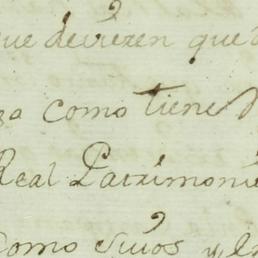 que devieren que
como tiene
Real Patrimoni
como suios y